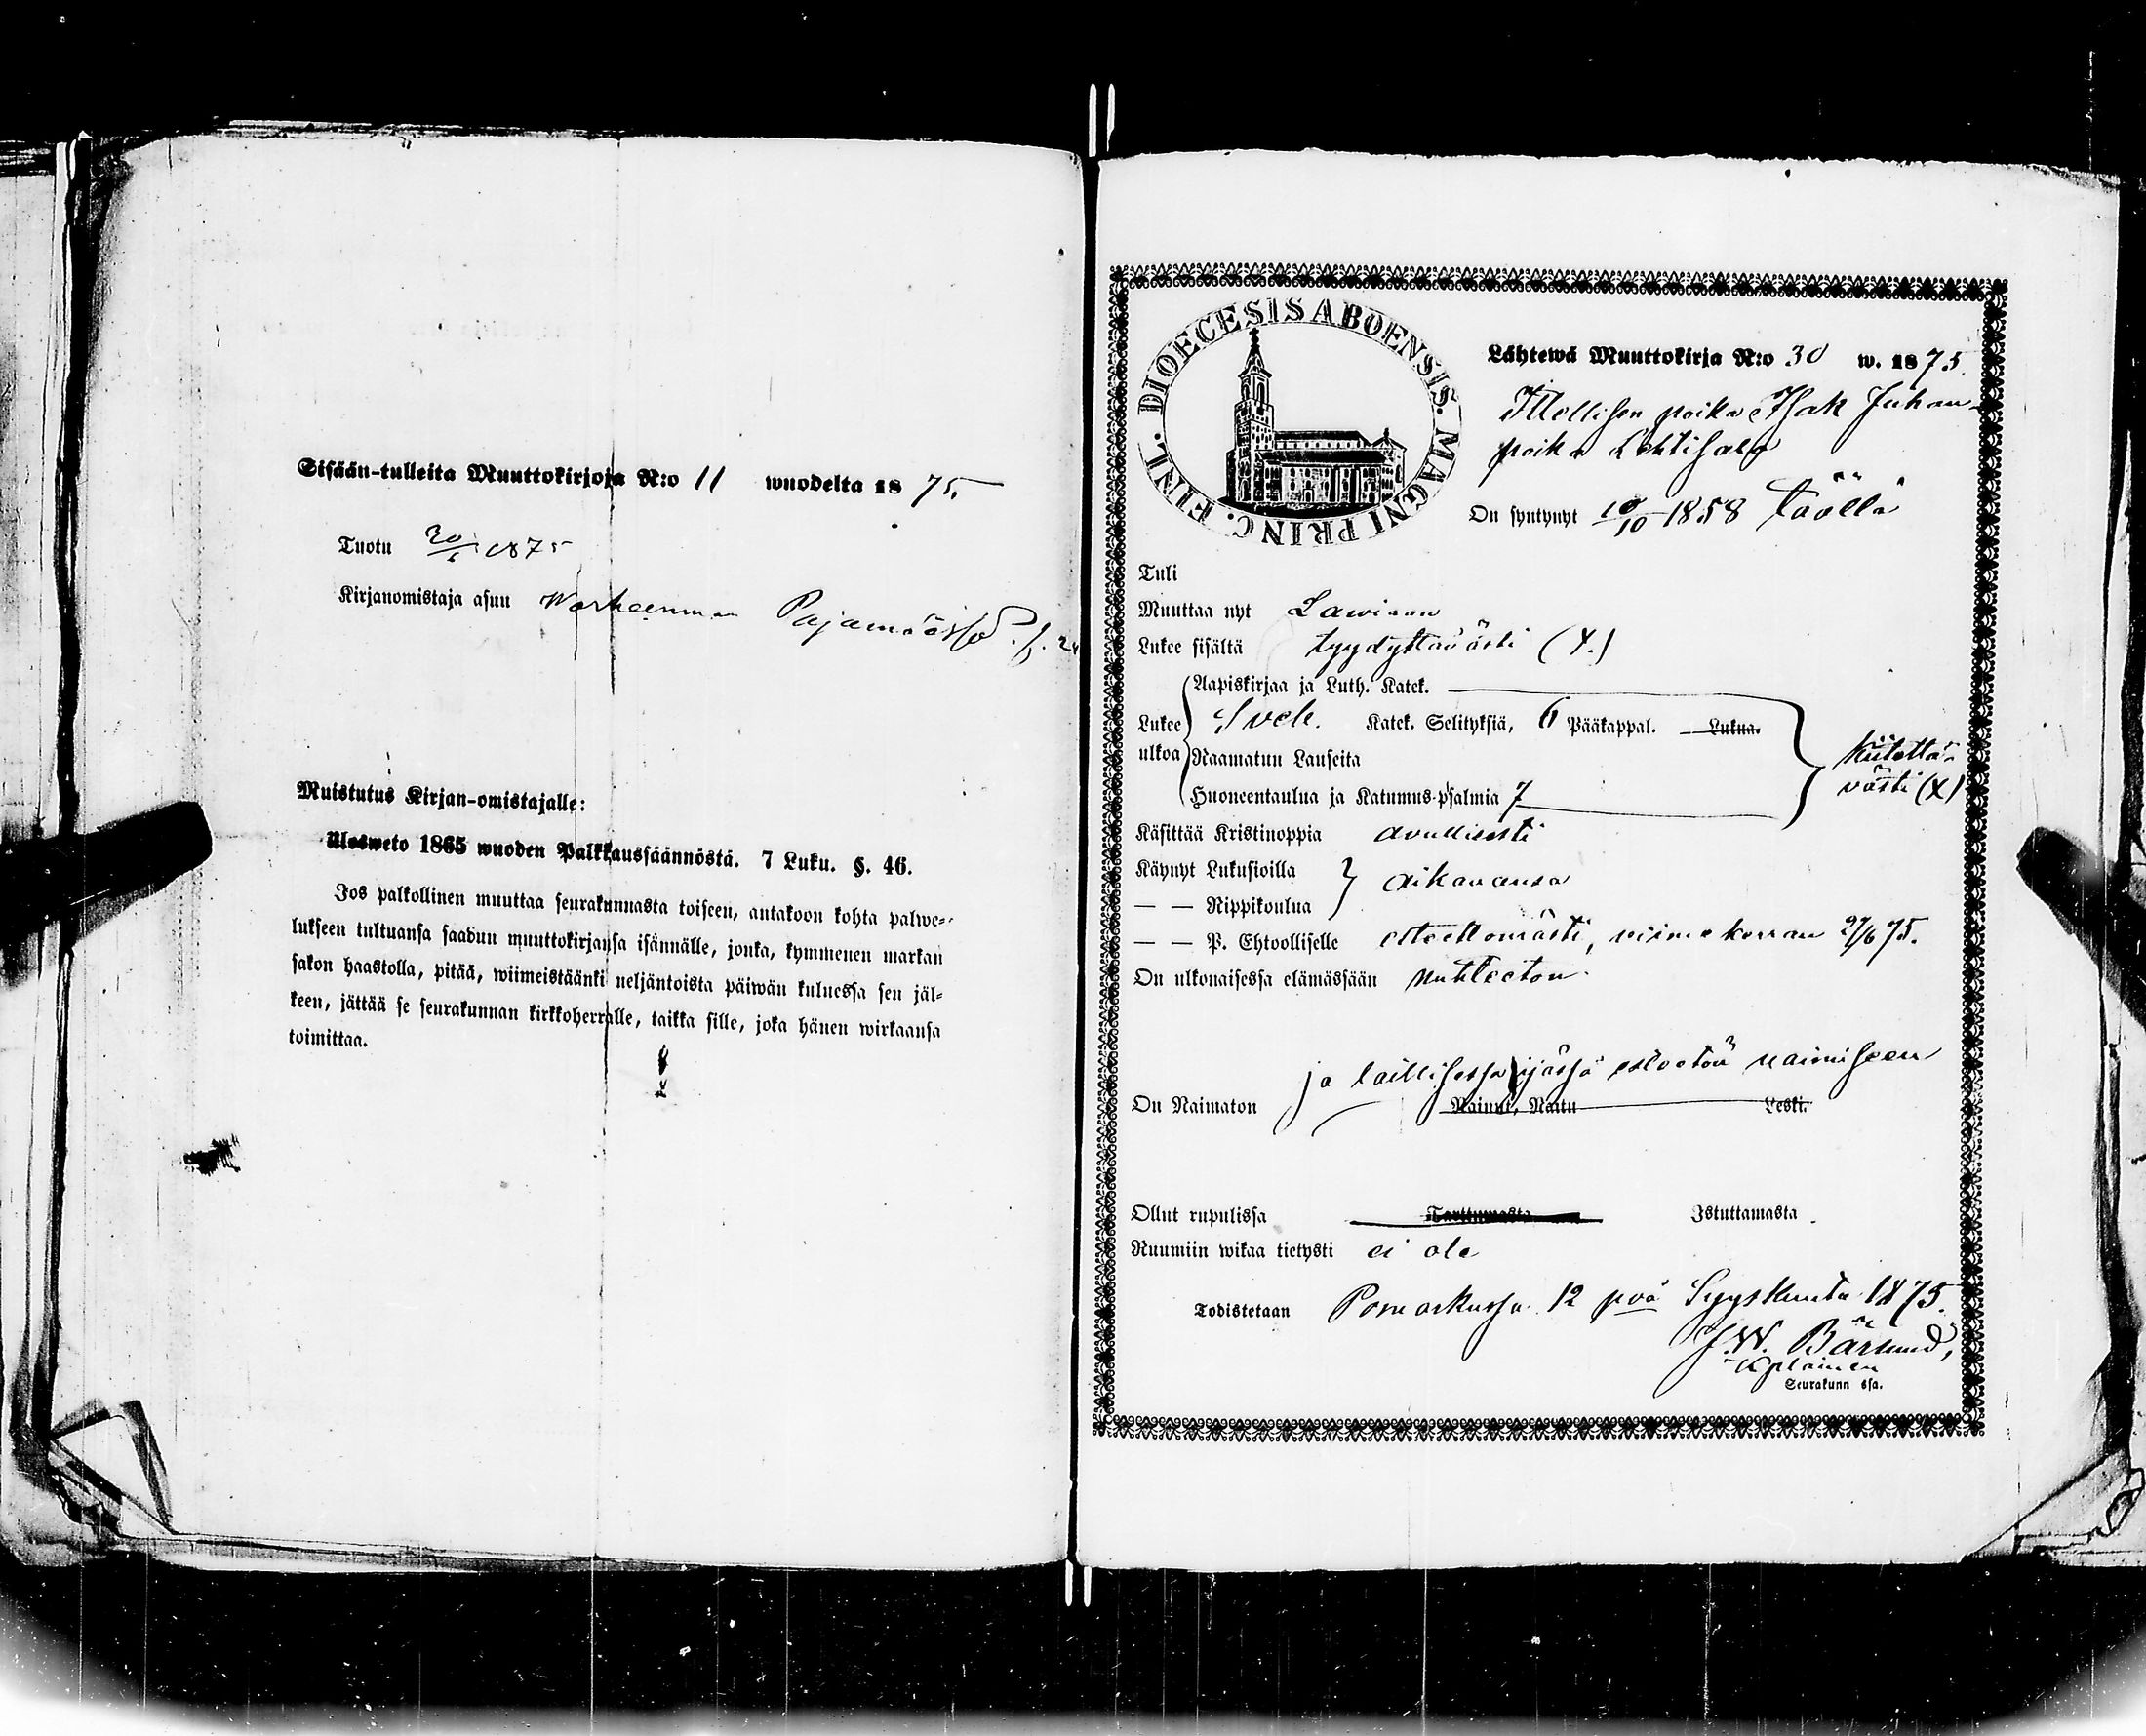 Sisään-tulleita Muuttokirjoja N:o 11 wuodelta 18 75.
Tuotu 1875
Kirjanomistaja asuu Pajamäessä
Muistutus Kirjan-omistajalle:
Ulosweto 1865 wuoden Palkkaussäännöstä. 7 Luku. §. 46.
Jos palkollinen muuttaa seurakunnasta toiseen, antakoon kohta palwe-
lukseen tultuansa saadun muuttokirjansa isännälle, jonka, kymmenen markan
sakon haastolla, pitää, wiimeistäänki neljäntoista päiwän kuluessa sen jäl-
keen, jättää se seurakunnan kirkkoherralle, taikka sille, joka hänen wirkaansa
toimittaa.
DIOECESIS ABOENSIS. MAGNI PRINC. FINL.
Lähtewä Muuttokirja N:o 30 w. 18 75.
Itellisen poika Isak Juhan-
poika Lehtisalo
On syntynyt 10/10 1858 täällä
Tuli
Muuttaa nyt Lawiaan
Lukee sisältä tyydyttävästi (X.)
Aapiskirjaa ja Luth. Katek.
Lukee ulkoa Sveb. Katek. Selityksiä, 6 Pääkappal. Lukua.
Raamatun Lauseita
Huoneentaulua ja Katumus-psalmia 7
Kiitettä-
västi (X)
Käsittää Kristinoppia avullisesti
Käynyt Lukusioilla
— — Rippikoulua aikanansa
— — P. Ehtoolliselle esteettömästi, viime kerran 27/6 75.
On ulkonaisessa elämässään nuhteeton
ja laillisessa ijässä esteetön naimiseen
On Naimaton Nainut, Naitu Leski.
Ollut rupulissa Tarttumasta Istuttamasta
Ruumiin wikaa tietysti ei ole
Todistetaan Pomarkussa 12 pvä Syyskuuta 1875.
J. W. Bärlund,
Kplainen
Seurakunn ssa.